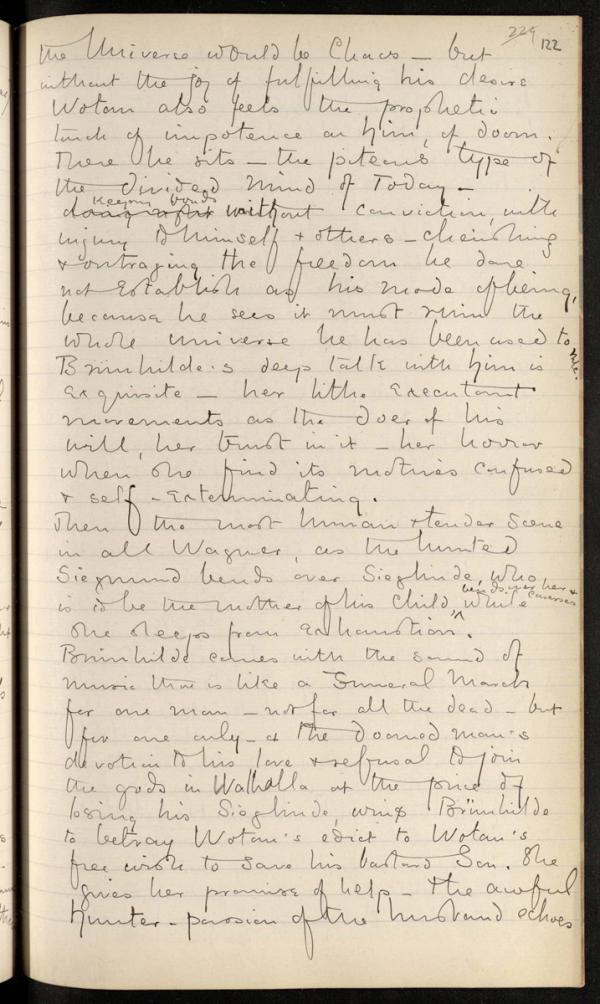 229 122
the Universe would be Chaos – but
without the joy of fulfilling his desire
Wotan also feels the prophetic
touch of impotence on him, of doom.
There he sits – the piteous type of
the divided mind of Today –
keeping bonds
without conviction, with
injury to himself & others – cherishing
& outraging the freedom he dare
not establish as his mode of being,
because he sees it must ruin the
whole universe he has been used to
Brünhilde's deep talk with him is
exquisite – her lithe executant
movements as the doer of his
will, her trust in it – her horror
when she find its motives confused
& self-exterminating.
Then the most human & tender scene
in all Wagner, as the hunted
Siegmund bends over Sieglinde, who
bends over her & caresses
is to be the mother of his child, while
she sleeps from exhaustion.
Brünhilde comes with the sound of
music that is like a Funeral March
for one man – not for all the dead – but
for one only – & the doomed man's
devotion to his love & refusal to join
the gods in Walhalla at the price of
losing his Sieglinde, wins Brünhilde
to betray Wotan's edict to Wotan's
free wish to save his bastard Son. She
gives her promise of help – & the awful
hunter-passion of the husband echoes